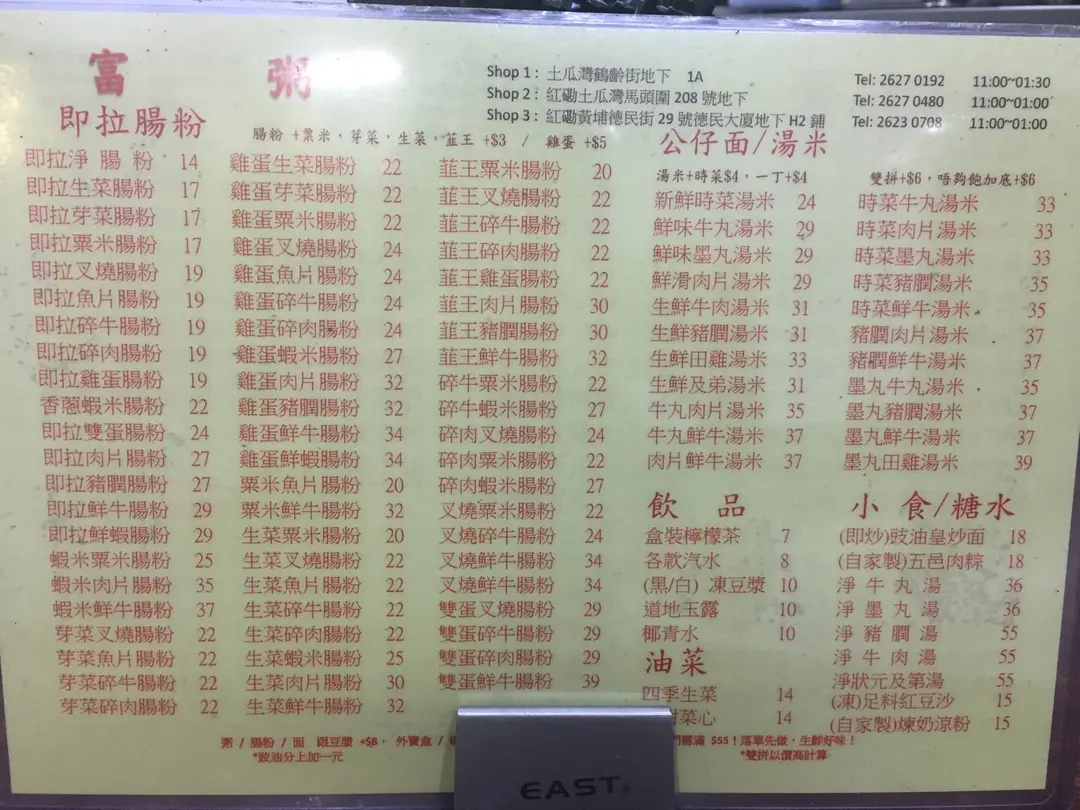 富 粥
Shop 1 : 土瓜灣鶴齡街地下 1A Tel: 2627 0192 11:00~01:30
Shop 2 : 紅磡土瓜灣馬頭圍 208 號地下 Tel: 2627 0480 11:00~01:00
Shop 3 : 紅磡黃埔德民街 29 號德民大廈地下 H2 鋪 Tel: 2623 0708 11:00~01:00
即拉腸粉
腸粉 +粟米，芽菜，生菜，韮王 +$3 / 雞蛋 +$5
即拉淨 腸 粉 14
即拉生菜腸粉 17
即拉芽菜腸粉 17
即拉粟米腸粉 17
即拉叉燒腸粉 19
即拉魚片腸粉 19
即拉碎牛腸粉 19
即拉碎肉腸粉 19
即拉雞蛋腸粉 19
香蔥蝦米腸粉 22
即拉雙蛋腸粉 24
即拉肉片腸粉 27
即拉豬膶腸粉 27
即拉鮮牛腸粉 29
即拉鮮蝦腸粉 29
蝦米粟米腸粉 25
蝦米肉片腸粉 35
蝦米鮮牛腸粉 37
芽菜叉燒腸粉 22
芽菜魚片腸粉 22
芽菜碎牛腸粉 22
芽菜碎肉腸粉 22
雞蛋生菜腸粉 22
雞蛋芽菜腸粉 22
雞蛋粟米腸粉 22
雞蛋叉燒腸粉 24
雞蛋魚片腸粉 24
雞蛋碎牛腸粉 24
雞蛋碎肉腸粉 24
雞蛋蝦米腸粉 27
雞蛋肉片腸粉 32
雞蛋豬膶腸粉 32
雞蛋鮮牛腸粉 34
雞蛋鮮蝦腸粉 34
粟米魚片腸粉 20
粟米鮮牛腸粉 32
生菜粟米腸粉 20
生菜叉燒腸粉 22
生菜魚片腸粉 22
生菜碎牛腸粉 22
生菜碎肉腸粉 22
生菜蝦米腸粉 25
生菜肉片腸粉 30
生菜鮮牛腸粉 32
韮王粟米腸粉 20
韮王叉燒腸粉 22
韮王碎牛腸粉 22
韮王碎肉腸粉 22
韮王雞蛋腸粉 22
韮王肉片腸粉 30
韮王豬膶腸粉 30
韮王鮮牛腸粉 32
碎牛粟米腸粉 22
碎牛蝦米腸粉 27
碎肉叉燒腸粉 24
碎肉粟米腸粉 22
碎肉蝦米腸粉 27
叉燒粟米腸粉 22
叉燒碎牛腸粉 24
叉燒鮮牛腸粉 34
叉燒鮮牛腸粉 34
雙蛋叉燒腸粉 29
雙蛋碎牛腸粉 29
雙蛋碎肉腸粉 29
雙蛋鮮牛腸粉 39
公仔面/湯米
湯米+時菜$4，一丁+$4 雙拼+$6，唔夠飽加底+$6
新鮮時菜湯米 24
鮮味牛丸湯米 29
鮮味墨丸湯米 29
鮮滑肉片湯米 29
生鮮牛肉湯米 31
生鮮豬膶湯米 31
生鮮田雞湯米 33
生鮮及弟湯米 31
牛丸肉片湯米 35
牛丸鮮牛湯米 37
肉片鮮牛湯米 37
時菜牛丸湯米 33
時菜肉片湯米 33
時菜墨丸湯米 33
時菜豬膶湯米 35
時菜鮮牛湯米 35
豬膶肉片湯米 37
豬膶鮮牛湯米 37
墨丸牛丸湯米 35
墨丸豬膶湯米 37
墨丸鮮牛湯米 37
墨丸田雞湯米 39
飲 品
盒裝檸檬茶 7
各款汽水 8
(黑/白) 凍豆漿 10
道地玉露 10
椰青水 10
油菜
四季生菜 14
菜心 14
小 食/糖水
(即炒)豉油皇炒面 18
(自家製)五邑肉粽 18
淨 牛 丸 湯 36
淨 墨 丸 湯 36
淨 豬 膶 湯 55
淨 牛 肉 湯 55
淨狀元及第湯 55
(凍)足料紅豆沙 15
(自家製)煉奶涼粉 15
粥 / 腸粉 / 面 跟豆漿 +$8， 外賣盒 / 需滿 $55！落單先做，生鮮好味！
*豉油分上加一元 *雙拼以價高計算
EAST®